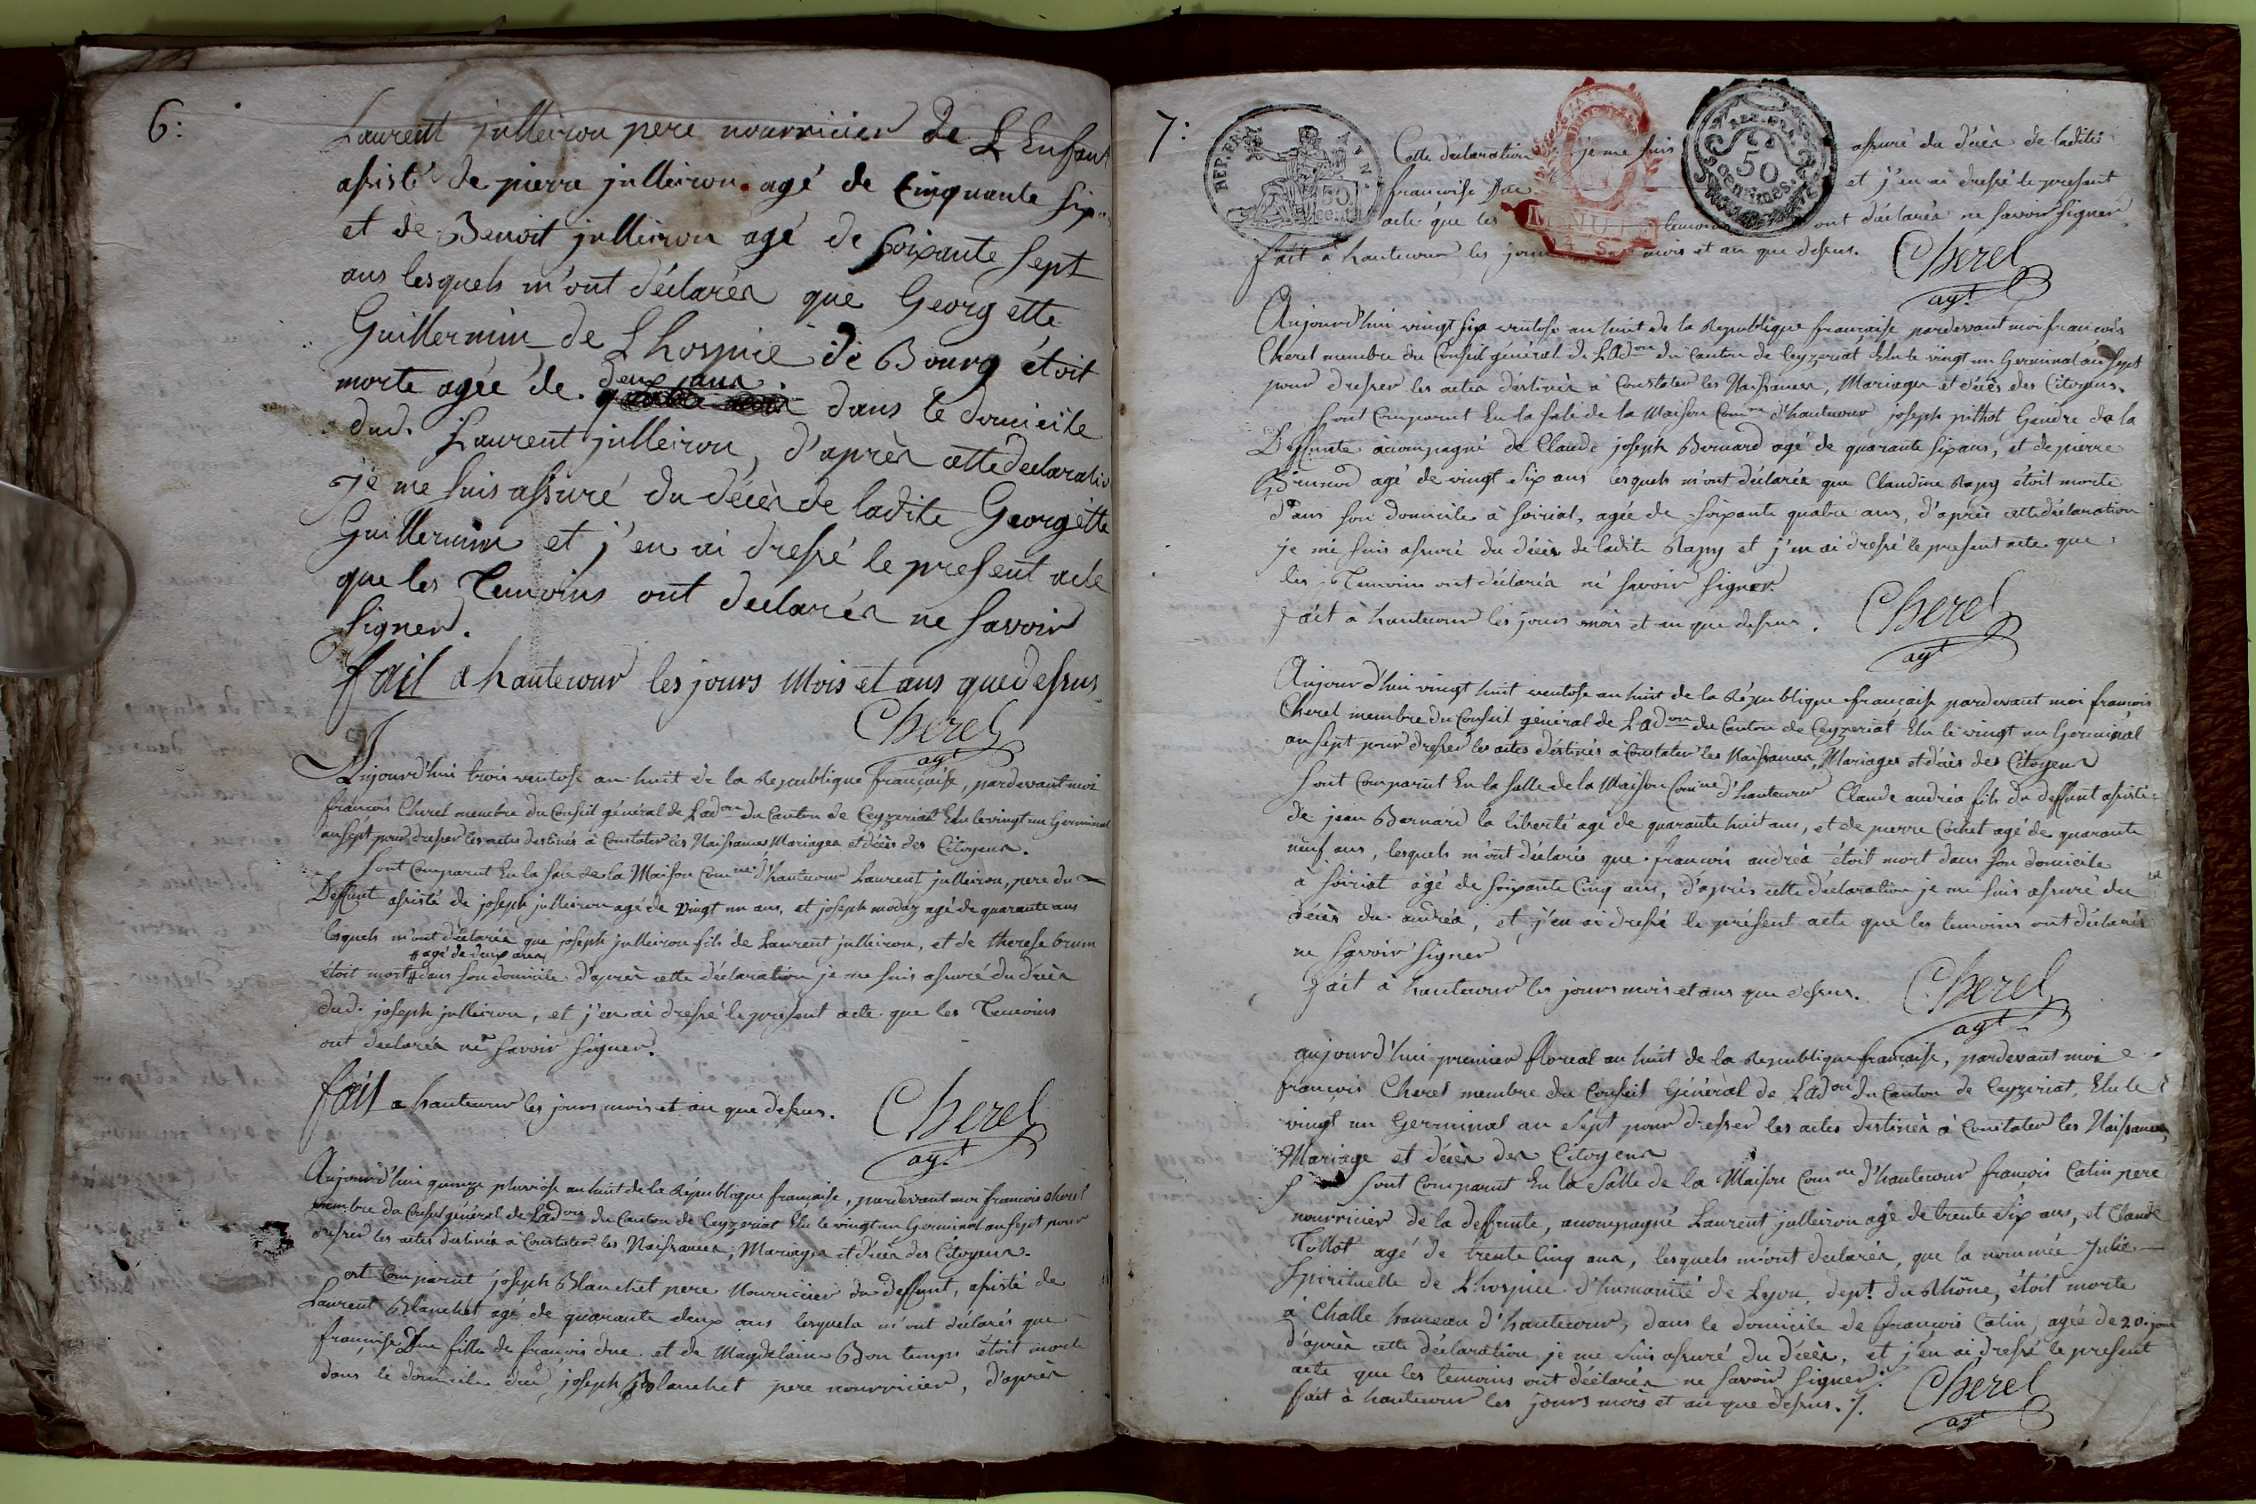 6:
Laurent julleiron pere nourricier de L Enfant
assisté de pierre julleiron agé de Cinquante Six
et de Benoit julleiron agé de Soixante Sept
ans lesquels m'ont déclarés que Georgette
Guillermin de L hospice de Bourg étoit
morte agée de deux ans dans le domicile
dud. Laurent julleiron, d'après cette declaration
je me suis assuré du décès de ladite Georgette
Guillermin et j'en ai dressé le present acte
que les Temoins ont declarés ne Savoir
Signer.
fait a hautecour les jours Mois et ans que dessus
Cherel
agt
Aujourd'hui trois ventose an huit de la Republique française, pardevant moi
françois Cherel membre du Conseil général de Ladon du Canton de Ceyzeriat Elu le vingt un Germinal
an sept pour dresser les actes destinés à Constater les Naissances Mariages et décès des Citoyens.
Sont Comparut En la Sale de la Maison Comne d'hautecour Laurent julleiron, pere du
Deffunt assisté de joseph julleiron agé de vingt un ans, et joseph moday agé de quarante ans
lesquels m'ont déclarés que joseph julleiron fils de Laurent julleiron, et de therese brun
agé de deux ans
étoit mort dans son domicile d'après cette déclaration je me suis assuré du décès
dud. joseph julleiron, et j'en ai dressé le present acte que les Temoins
ont declarés ne Savoir Signer.
fait a hautecour les jours mois et an que dessus.
Cherel
agt
Aujourd'hui quinze pluviose an huit de la République française, pardevant moi francois cherel
membre du Conseil général de Ladon du Canton de Ceyzeriat Elu le vingt un Germinal an sept pour
dresser les actes destinés a Constater les Naissances, Mariages et décès des Citoyens.
ont Comparut joseph Blanchet pere Nourricier du deffunt, assisté de
Laurent Blanchet agé de quarante deux ans lesquels m'ont déclarés que
françoise Due fille de françois due et de Magdelaine Bon temps étoit morte
dans le domicile dud. joseph Blanchet pere nourricier, d'après
7:
REP. FRA. 50 cent.
50 centimes
Cette declaration je me suis assuré du décès de ladite
francoise Due et j'en ai dressé le present
acte que les temoins ont déclarés ne savoir Signer
fait à hautecour les jours mois et an que dessus.
Cherel
agt
Aujourd'hui vingt six ventose an huit de la Republique francaise pardevant moi francois
Cherel membre du Conseil général de Ladon du Canton de Ceyzeriat, Elu le vingt un Germinal an Sept
pour dresser les actes destinés à Constater les Naissances, Mariages et décès des Citoyens.
Sont Comparut En la Sale de la Maison Comne d'hautecour joseph Gendre de la
Deffunte acompagné de Claude joseph Bernard agé de quarante six ans, et de pierre
agé de vingt Six ans lesquels m'ont déclarés que Claudine Rapy étoit morte
dans son domicile à Soiriat, agée de Soixante quatre ans, d'après cette déclaration
je me suis assuré du décès de ladite Rapy et j'en ai dressé le present acte que
les Temoins ont déclarés ne Savoir Signer
fait à hautecour les jours mois et an que dessus.
Cherel
agt
Aujourd'hui vingt huit ventose an huit de la République française pardevant moi françois
Cherel membre du Conseil général de Ladon du Canton de Ceyzeriat Elu le vingt un Germinal
an Sept pour dresser les actes déstinés a Constater les Naissances, Mariages et décès des Citoyens
Sont Comparut En la Salle de la Maison Comne d'hautecour Claude andréa fils du deffunt assisté
de jean Bernard la liberté agé de quarante huit ans, et de pierre Cochet agé de quarante
neuf ans, lesquels m'ont déclarés que francois andréa étoit mort dans son domicile
à Soiriat agé de Soixante Cinq ans, d'après cette déclaration je me suis assuré du
décès du andréa, et j'en ai dressé le présent acte que les temoins ont déclarés
ne Savoir Signer
fait à hautecour les jours mois et ans que dessus.
Cherel
agt
aujourd'hui premier floreal an huit de la Republique francaise, pardevant moi
francois Cherel membre du Conseil Général de Ladon du Canton de Ceyzeriat, Elu le
vingt un Germinal an Sept pour dresser les actes destinés à Constater les Naissances,
Mariage et décès des Citoyens
Sont Comparut En la Salle de la Maison Comne d'hautecour françois Catin pere
nourricier de la deffunte, acompagné Laurent julleiron agé de trente Six ans, et Claude
Tollot agé de trente Cinq ans, lesquels m'ont declarés, que la nommée Julie
Spirituelle de L'hospice d'humanité de Lyon, dept. du Rhône, étoit morte
à Challe hameau d'hautecour, dans le domicile de françois Catin, agée de 20 jours
d'après cette déclaration je me suis assuré du décès, et j'en ai dressé le present
acte que les temoins ont déclarés ne savoir Signer.
fait à hautecour les jours mois et an que dessus.
Cherel
agt